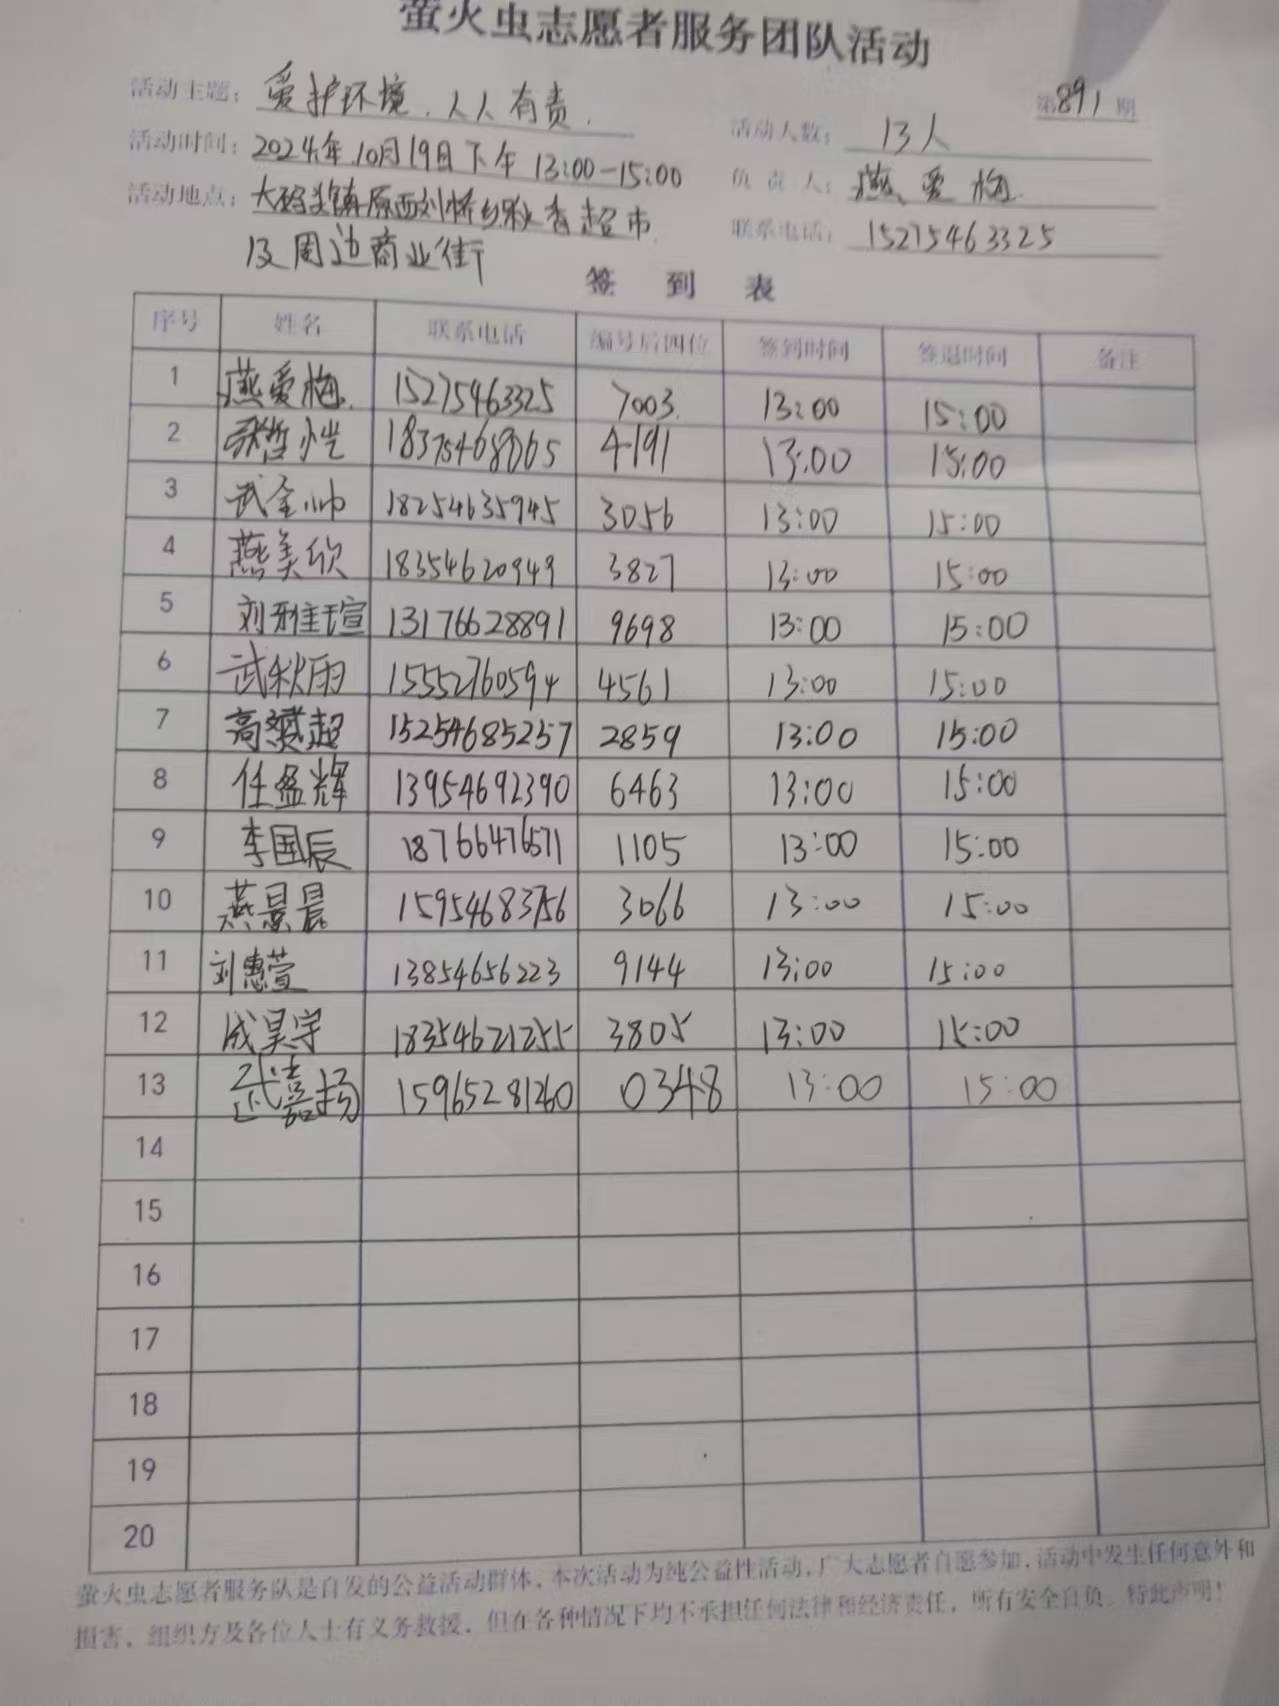 萤火虫志愿者服务团队活动
第891期
活动主题：爱护环境，人人有责.
活动人数：13人
活动时间：2024年10月19日下午13:00-15:00
负责人：燕爱梅
活动地点：大码头镇原西刘桥乡秋香超市
联系电话：15275463325
及周边商业街
签到表
序号 姓名 联系电话 编号后四位 签到时间 签退时间 备注
1 燕爱梅 15275463325 7003 13:00 15:00
2 4191 13:00 15:00
3 武金帅 18254635945 3056 13:00 15:00
4 燕美欣 18354620949 3827 13:00 15:00
5 刘雅瑄 13176628891 9698 13:00 15:00
6 武秋雨 15552760594 4561 13:00 15:00
7 高赟超 15254685257 2859 13:00 15:00
8 任盈辉 13954692390 6463 13:00 15:00
9 李国辰 18766476571 1105 13:00 15:00
10 燕景晨 15954683756 3066 13:00 15:00
11 刘惠萱 13854656223 9144 13:00 15:00
12 成昊宇 18354621255 3805 13:00 15:00
13 武嘉扬 15965281260 0348 13:00 15:00
14
15
16
17
18
19
20
萤火虫志愿者服务队是自发的公益活动群体，本次活动为纯公益性活动，广大志愿者自愿参加，活动中发生任何意外和
损害，组织方及各位人士有义务救援，但在各种情况下均不承担任何法律和经济责任，所有安全自负。特此声明！